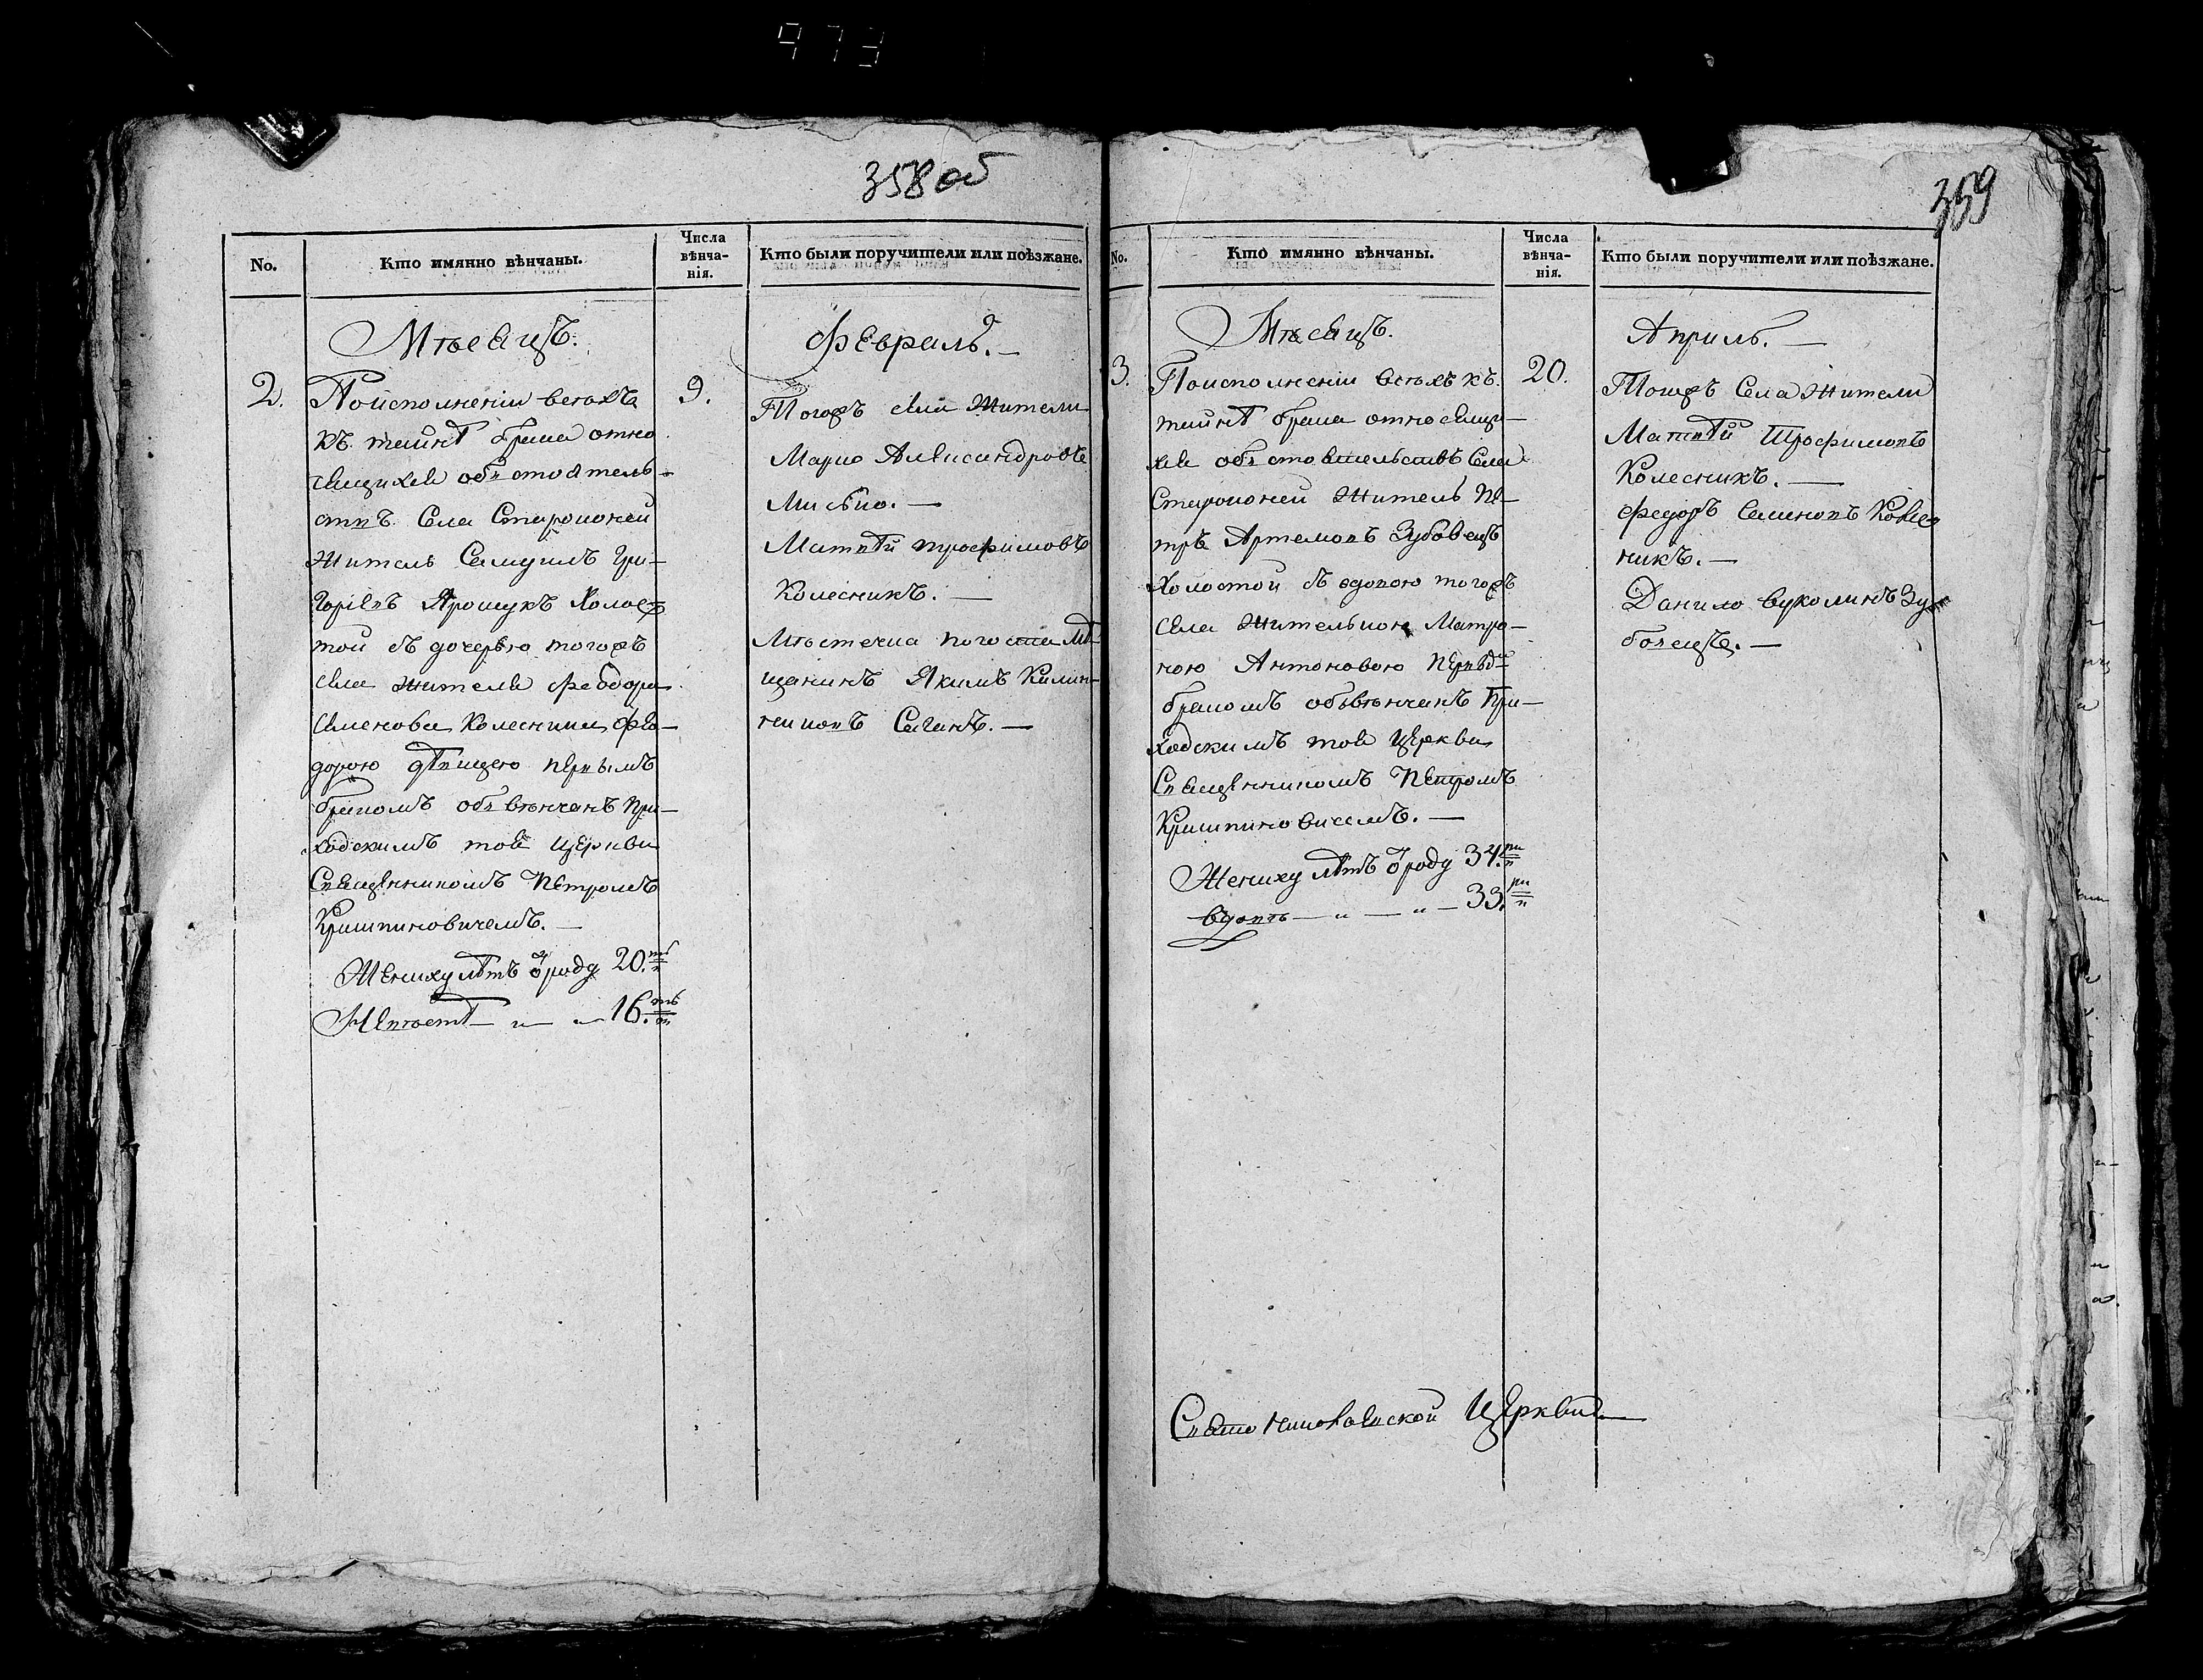 358 об
No.
Кто имянно вѣнчаны.
Числа
вѣнча-
нія.
Кто были поручители или поѣзжане.
Мѣсяцъ.
Февраль. —
2.
9.
По исполненіи всѣхъ
къ тайнѣ брака отно
сящихся обстоятель-
ствъ Села Староконей
Житель Самуилъ Гри-
горіевъ Ярощукъ Холос-
той съ дочерью тогожъ
села жителя Феодора
Семенова Колесника Фео-
дорою дѣвицею первымъ
бракомъ обвѣнчанъ При-
ходскимъ тоя Церкви
Священникомъ Петромъ
Криштиновичемъ. —
Жениху лѣтъ ѿ роду 20.ть
Невѣстѣ — „ — „ — 16.ть
Тогожъ села Жители
Марко Александровъ
Мисько. —
Матвѣй Трофимовъ
Колесникъ. —
Мѣстечка Погоста Мѣ-
щанинъ Якимъ
Саганъ. —
359
No.
Кто имянно вѣнчаны.
Числа
вѣнча-
нія.
Кто были поручители или поѣзжане.
Мѣсяцъ.
Априль. —
3.
20.
По исполненіи всѣхъ къ
тайнѣ брака относящи-
хся обстоятельствъ Села
Староконей Житель Пе-
тръ Артемовъ Зубовецъ
Холостой съ вдовою тогожъ
села Жителькою Матро-
ною Антоновою первымъ
бракомъ обвѣнчанъ При-
ходскимъ тоя Церкви
Священникомъ Петромъ
Криштиновичемъ. —
Жениху лѣтъ ѿ роду 34.ри
Вдовѣ — „ — „ — 33.ри
Тогожъ Села Жители
Матвѣй Трофимовъ
Колесникъ. —
Федоръ Семеновъ Колес-
никъ. —
Данило Вуколинъ Зу-
бовецъ. —
Свято Николаевской Церкви —